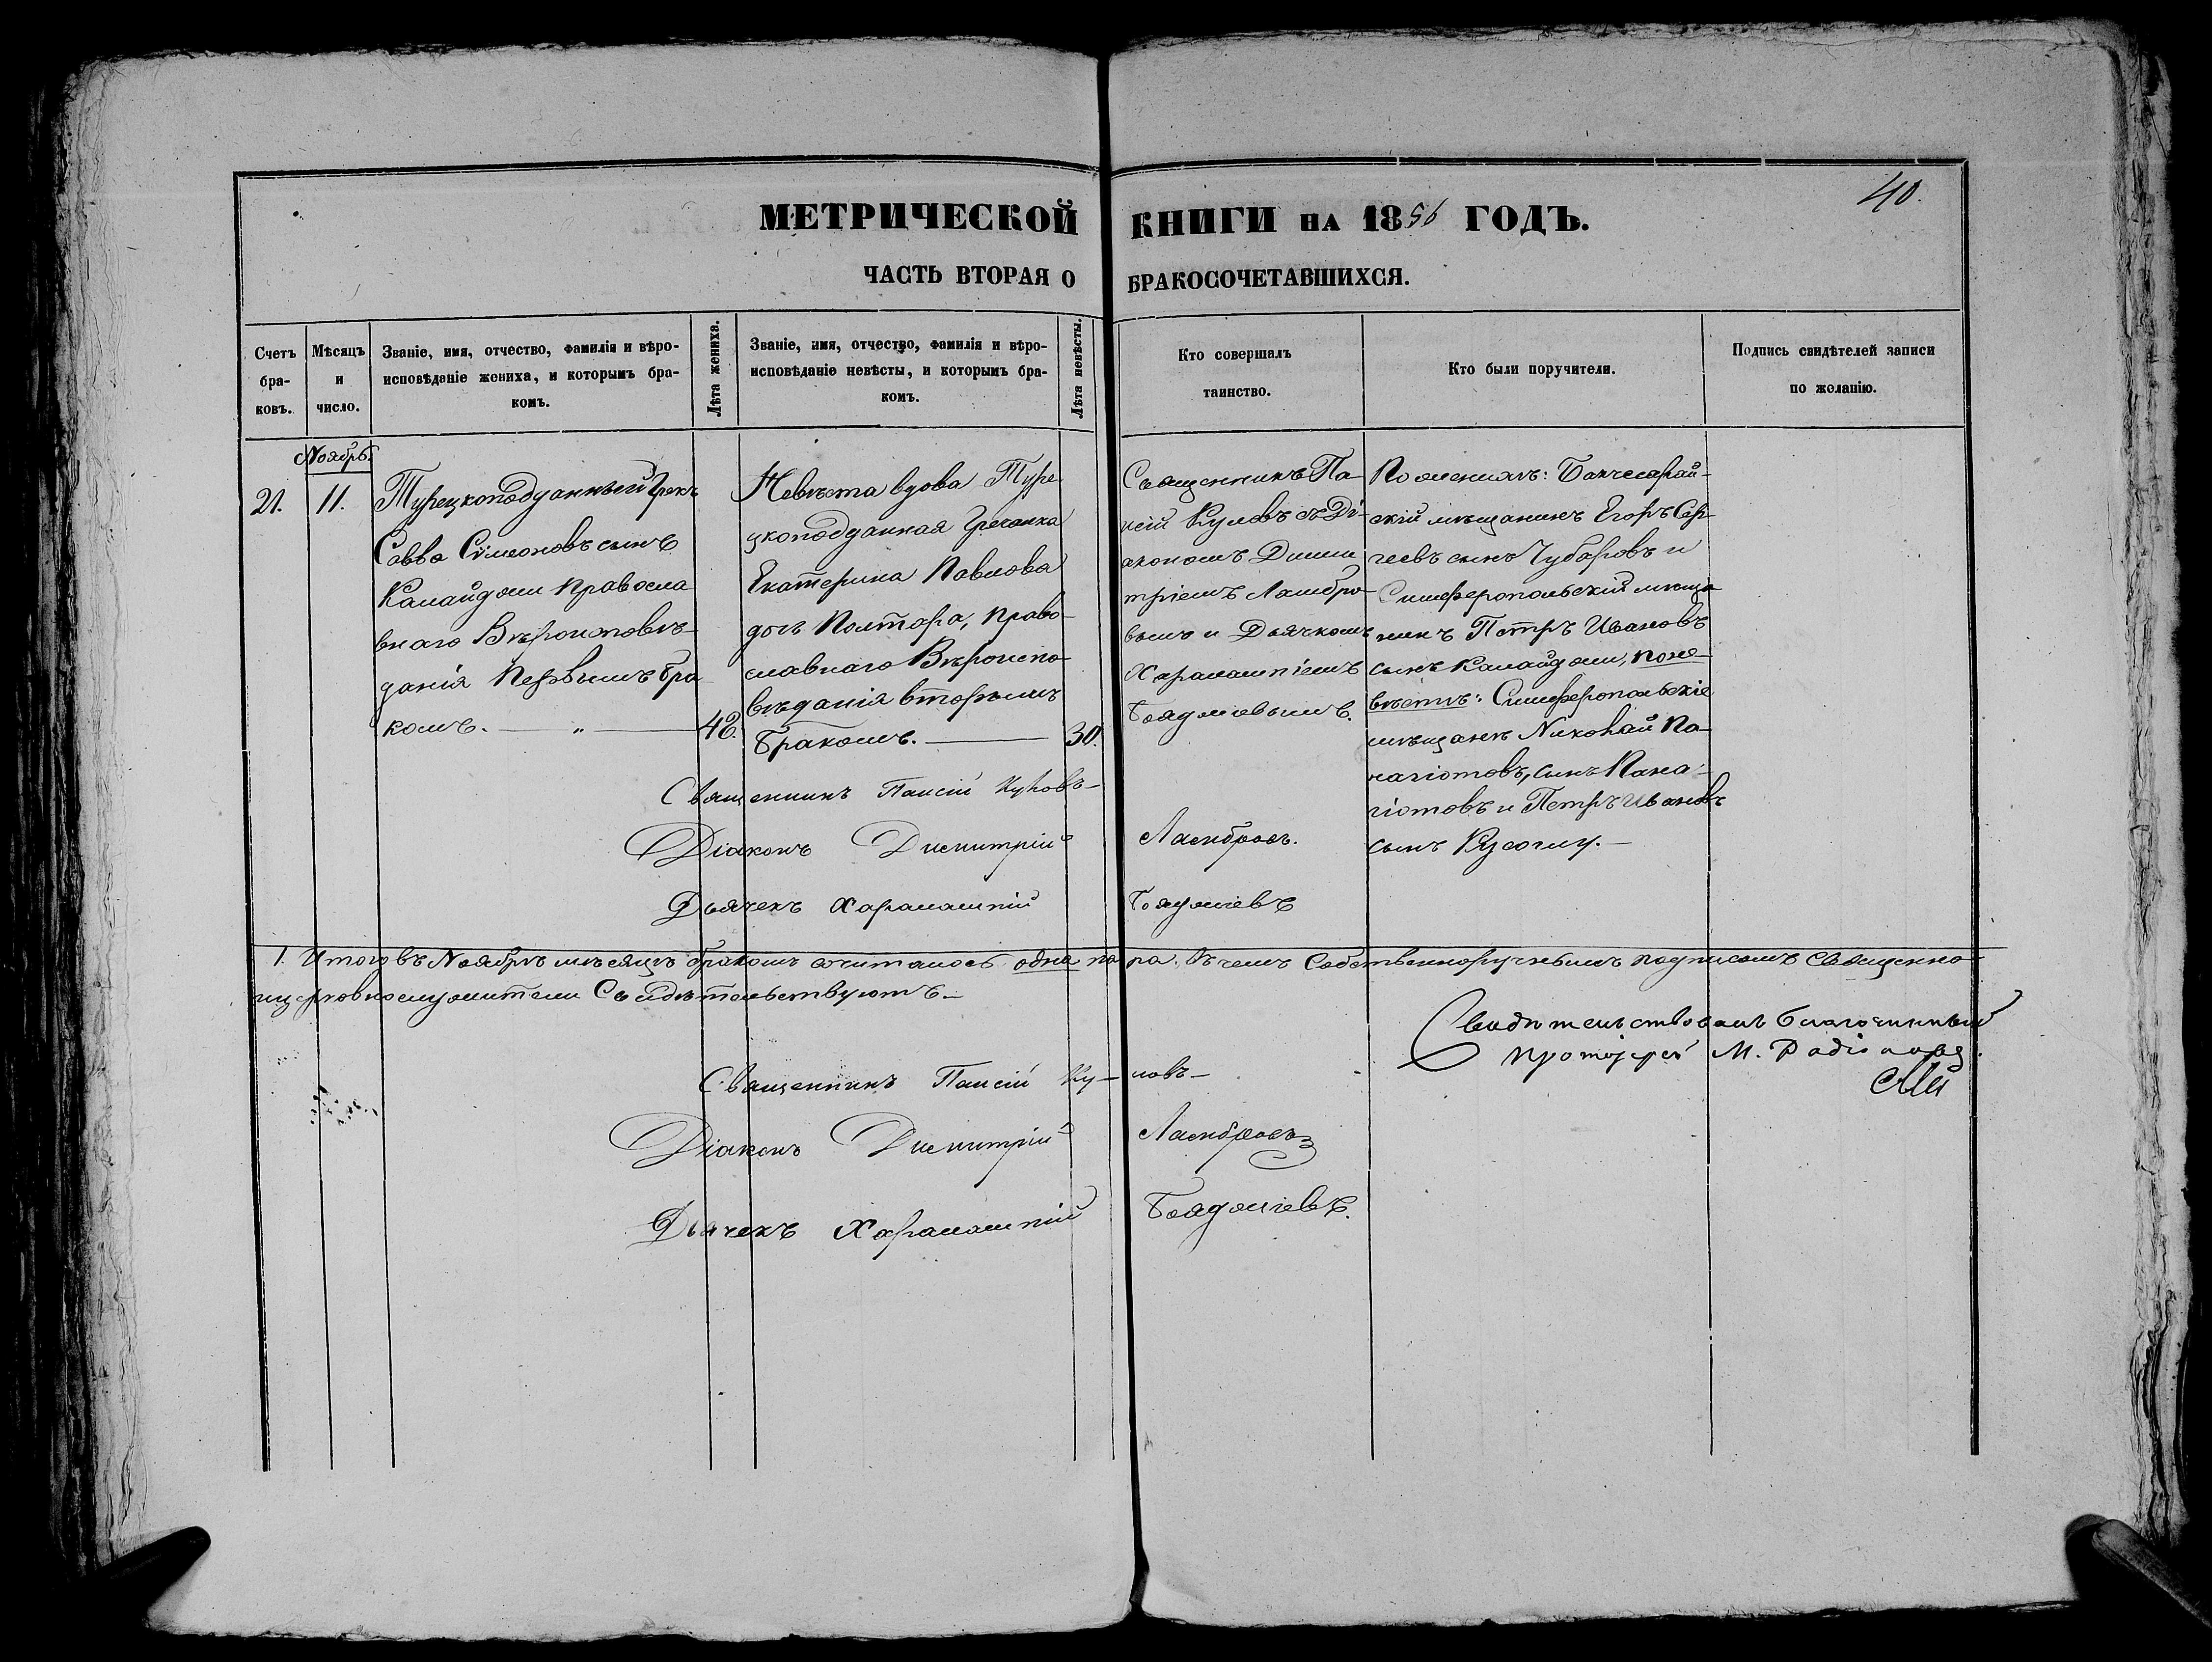 40.
МЕТРИЧЕСКОЙ КНИГИ НА 1856 ГОДЪ.
ЧАСТЬ ВТОРАЯ О БРАКОСОЧЕТАВШИХСЯ.
Счетъ бра-ковъ.
Мѣсяцъ и число.
Званіе, имя, отчество, фамилія и вѣро-
исповѣданіе жениха, и которымъ бра-
комъ.
Лѣта жениха.
Званіе, имя, отчество, фамилія и вѣро-
исповѣданіе невѣсты, и которымъ бра-
комъ.
Лѣта невѣсты.
Кто совершалъ
таинство.
Кто были поручители.
Подпись свидѣтелей записи
по желанію.
Ноябрь.
21. 11.
Турецкоподданный Грекъ
Савва Симеоновъ сынъ
Калайджи Правосла
внаго Вѣроисповѣ-
данія Первымъ бра
комъ. — „ — 42.
Невѣста вдова Туре
цкоподданная Гречанка
Екатерина Павлова
дочь Полтора, Право-
славнаго Вѣроиспо-
вѣданія вторымъ
Бракомъ. — 30.
Священникъ Па-
исій Куловъ съ Ді-
акономъ Дими
тріемъ Ламбро-
вымъ и Дьячкомъ
Харалампіемъ
Бояджіевымъ.
По женихѣ: Бакчесарай-
скій мѣщанинъ Егоръ Сер
геевъ сынъ Чубаровъ и
Симферопольскій мѣща
нинъ Петръ Ивановъ
сынъ Калайджи, по не-
вѣстѣ: Симферопольскіе
мѣщане Николай Па-
нагіотовъ, сынъ Пана-
гіотовъ и Петръ Ивановъ
сынъ Кузоглу. —
Священникъ Паисій Куловъ —
Діаконъ Димитрій Ламбровъ.
Дьячекъ Харалампій Бояджіевъ
1. Итого въ Ноябрѣ мѣсяцѣ бракомъ сочиталось одна пара, въ чемъ Собственноручнымъ подписомъ Священно
и церковнослужители Свидѣтельствуютъ. —
Свидѣтельствовалъ Благочинный
протоіерей М. Родіоновъ.
Священникъ Паисій Ку-ловъ —
Діаконъ Димитрій Ламбровъ
Дьячекъ Харалампій Бояджіевъ.